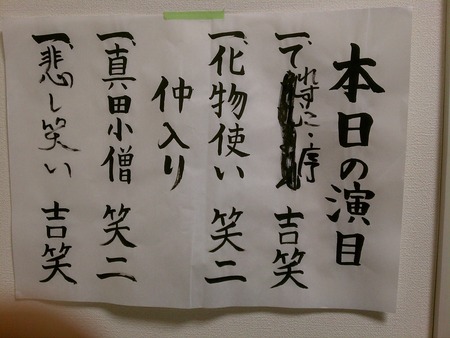 本日の演目
一、でれすけ・序 吉笑
一、化物使い 笑二
仲入り
一、真田小僧 笑二
一、悲し笑い 吉笑